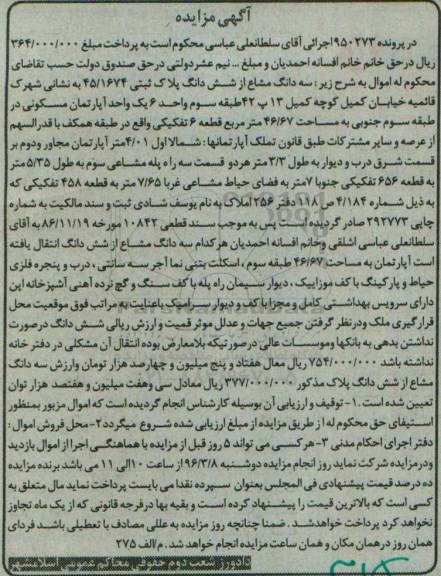 آگهی مزایده
در پرونده ۹۵۰۲۷۳ اجرائی آقای سلطانعلی عباسی محکوم است به پرداخت مبلغ ۳۶۴/۰۰۰/۰۰۰
ریال در حق خانم خانم افسانه احمدیان و مبلغ ... نیم عشر دولتی در حق صندوق دولت حسب تقاضای
محکوم له اموال به شرح زیر: سه دانگ مشاع از شش دانگ پلاک ثبتی ۴۵/۱۶۷۴ به نشانی شهرک
قائمیه خیابان کمیل کوچه کمیل ۱۳ پ ۴۲ طبقه سوم واحد ۶ یک واحد آپارتمان مسکونی در
طبقه سوم جنوبی به مساحت ۴۶/۶۷ متر مربع قطعه ۶ تفکیکی واقع در طبقه همکف با قدرالسهم
از عرصه و سایر مشترکات طبق قانون تملک آپارتمانها: شمالا اول ۴/۰۱ متر آپارتمان مجاور ودوم بر
قسمت شرق درب و دیوار به طول ۳/۳ متر هر دو قسمت سه راه پله مشاعی سوم به طول ۵/۳۵ متر
به قطعه ۶۵۶ تفکیکی جنوبا ۷ متر به فضای حیاط مشاعی غربا ۷/۶۵ متر به قطعه ۴۵۸ تفکیکی که
به ذیل شماره ۴/۱۸۴ ص ۱۱۸ دفتر ۲۵۶ املاک به نام یوسف شادی ثبت و سند مالکیت به شماره
چاپی ۲۹۲۷۷۳ صادر گردیده است پس به موجب سند قطعی ۱۰۸۴۲ مورخه ۸۶/۱۱/۱۹ به آقای
سلطانعلی عباسی اشلقی وخانم افسانه احمدیان هر کدام سه دانگ مشاع از شش دانگ انتقال یافته
است آپارتمان به مساحت ۴۶/۶۷ طبقه سوم ، اسکلت بتنی نما آجر سه سانتی ، درب و پنجره فلزی
حیاط و پارکینگ با کف موزاییک ، دیوار سیمان راه پله با کف سنگ و گچ نرده آهنی آشپزخانه این
دارای سرویس بهداشتی کامل و مجزا با کف و دیوار سرامیک باعنایت به مراتب فوق موقعیت محل
قرار گیری ملک ودرنظر گرفتن جمیع جهات و عدلل موثر قمیت و ارزش ریالی شش دانگ درصورت
نداشتن بدهی به بانکها وموسسات عالی در صورتیکه بلامعارض بوده انتقال آن مشکلی در دفتر خانه
نداشته باشد ۷۵۴/۰۰۰/۰۰۰ ریال معال هفتاد و پنج میلیون و چهارصد هزار تومان وارزش سه دانگ
مشاع از شش دانگ پلاک مذکور ۳۷۷/۰۰۰/۰۰۰ ریال معادل سی وهفت میلیون و هفتصد هزار توان
تعیین شده است . ۱- توقیف و ارزیابی آن بوسیله کارشناس انجام گردیده است که اموال مزبور بمنظور
استیفای حق محکوم له از طریق مزایده از مبلغ ارزیابی شده شروع میگردد ۲- محل فروش اموال :
دفتر اجرای احکام مدنی ۳- هر کسی می تواند ۵ روز قبل از مزایده با هماهنگی اجرا از اموال بازدید
ودرمزایده شرکت نماید روز انجام مزایده دوشنبه ۹۶/۳/۸ از ساعت ۱۰ الی ۱۱ می باشد برنده مزایده
ده درصد قیمت پیشنهادی فی المجلس بعنوان سپرده نقدا می بایست پرداخت نماید مال متعلق به
کسی است که بالاترین قیمت را پیشنهاد کرده است و بقیه بها درفرجه قانونی که از یک ماه تجاوز
نخواهد کرد پرداخت خواهدشد . ضمنا چنانچه روز مزایده به عللی مصادف با تعطیلی باشد فردای
همان روز درهمان مکان و همان ساعت مزایده انجام خواهد شد . م/الف ۲۷۵
دادورز شعبه دوم حقوقی محاکم عمومی اسلامشهر